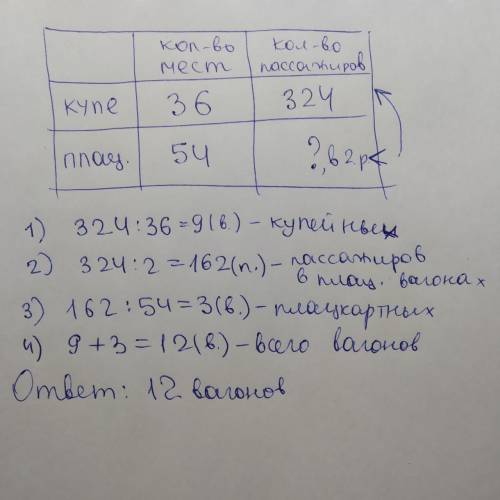 кол-во мест кол-во пассажиров
купе 36 324
плац. 54 ?, в 2 р <
1) 324 : 36 = 9 (в.) – купейных
2) 324 : 2 = 162 (п.) – пассажиров
в плац. вагонах
3) 162 : 54 = 3 (в.) – плацкартных
4) 9 + 3 = 12 (в.) – всего вагонов
Ответ: 12 вагонов